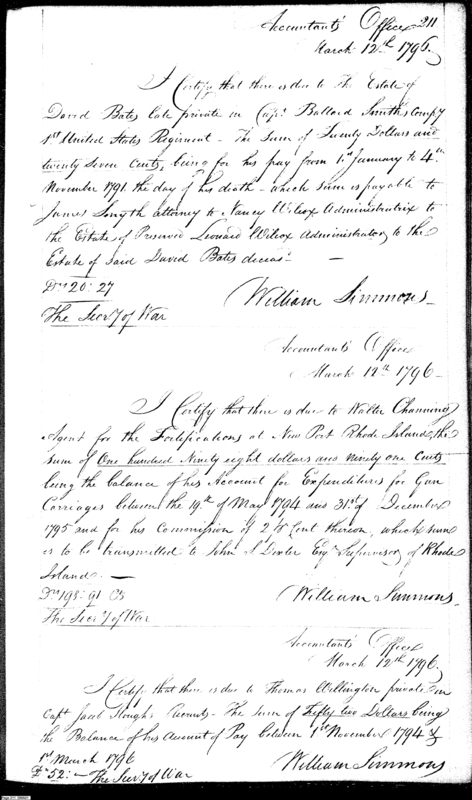 211
Accountants Office
March 12th 1796
I Certify that there is due to The Estate of
David Bates late private in Capt. Ballard Smiths Compy
1st United States Regiment - The Sum of Twenty Dollars and
twenty Seven Cents, being for his pay from 1st January to 4th
November 1791 the day of his death - which sum is payable to
James Smyth attorney to Nancy Wilcox Administratrix to
the Estate of Preserved Leonard Wilcox Administrator to the
Estate of Said David Bates deceas'd -
Drs 20: 27
William Simmons -
The Secr'y of War
Accountants Office
March 12th 1796 -
I Certify that there is due to Walter Channing
Agent for the Fortifications at New Port Rhode Island, the
sum of One hundred Ninety eight dollars and ninety one Cents
being the balance of his Account for Expenditures for Gun
Carriages between the 19th of May 1794 and 31st of December
1795 and for his Commission of 2 Cent thereon, which sum
is to be transmitted to John S Dexter Esqr Supervisor of Rhode
Island. -
Drs 198: 91 Cts
William Simmons.
The Secr'y of War
Accountants Office
March 12th 1796
I Certify that there is due to Thomas Wellington private in
Capt Jacob Slough's Recruits - The sum of Fifty two Dollars being
the Balance of his Account of Pay between 1st November 1794 &
1st March 1796
Drs 52: - The Secr'y of War
William Simmons